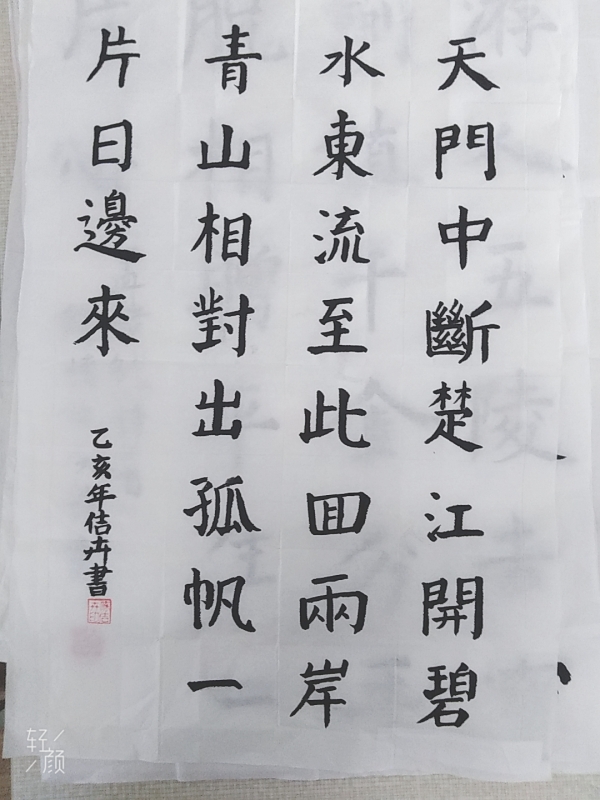 天門中斷楚江開碧
水東流至此囬兩岸
青山相對出孤帆一
片日邊來
乙亥年佶卉書
轻颜